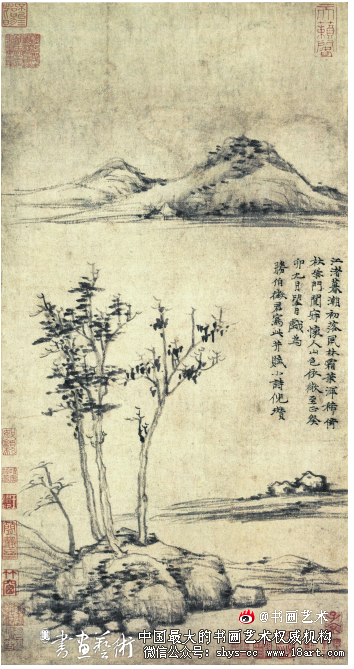 天籟閣
江渚暮潮初落風林霜葉渾稀倚
杖柴門闃寂懷人山色依微至正癸
卯九月望日戲為
勝伯徵君寫此并賦小詩倪瓚
@书画艺术
書畫藝術
中国最大的书画艺术权威机构
微信公众号：shys-cc www.18art.com